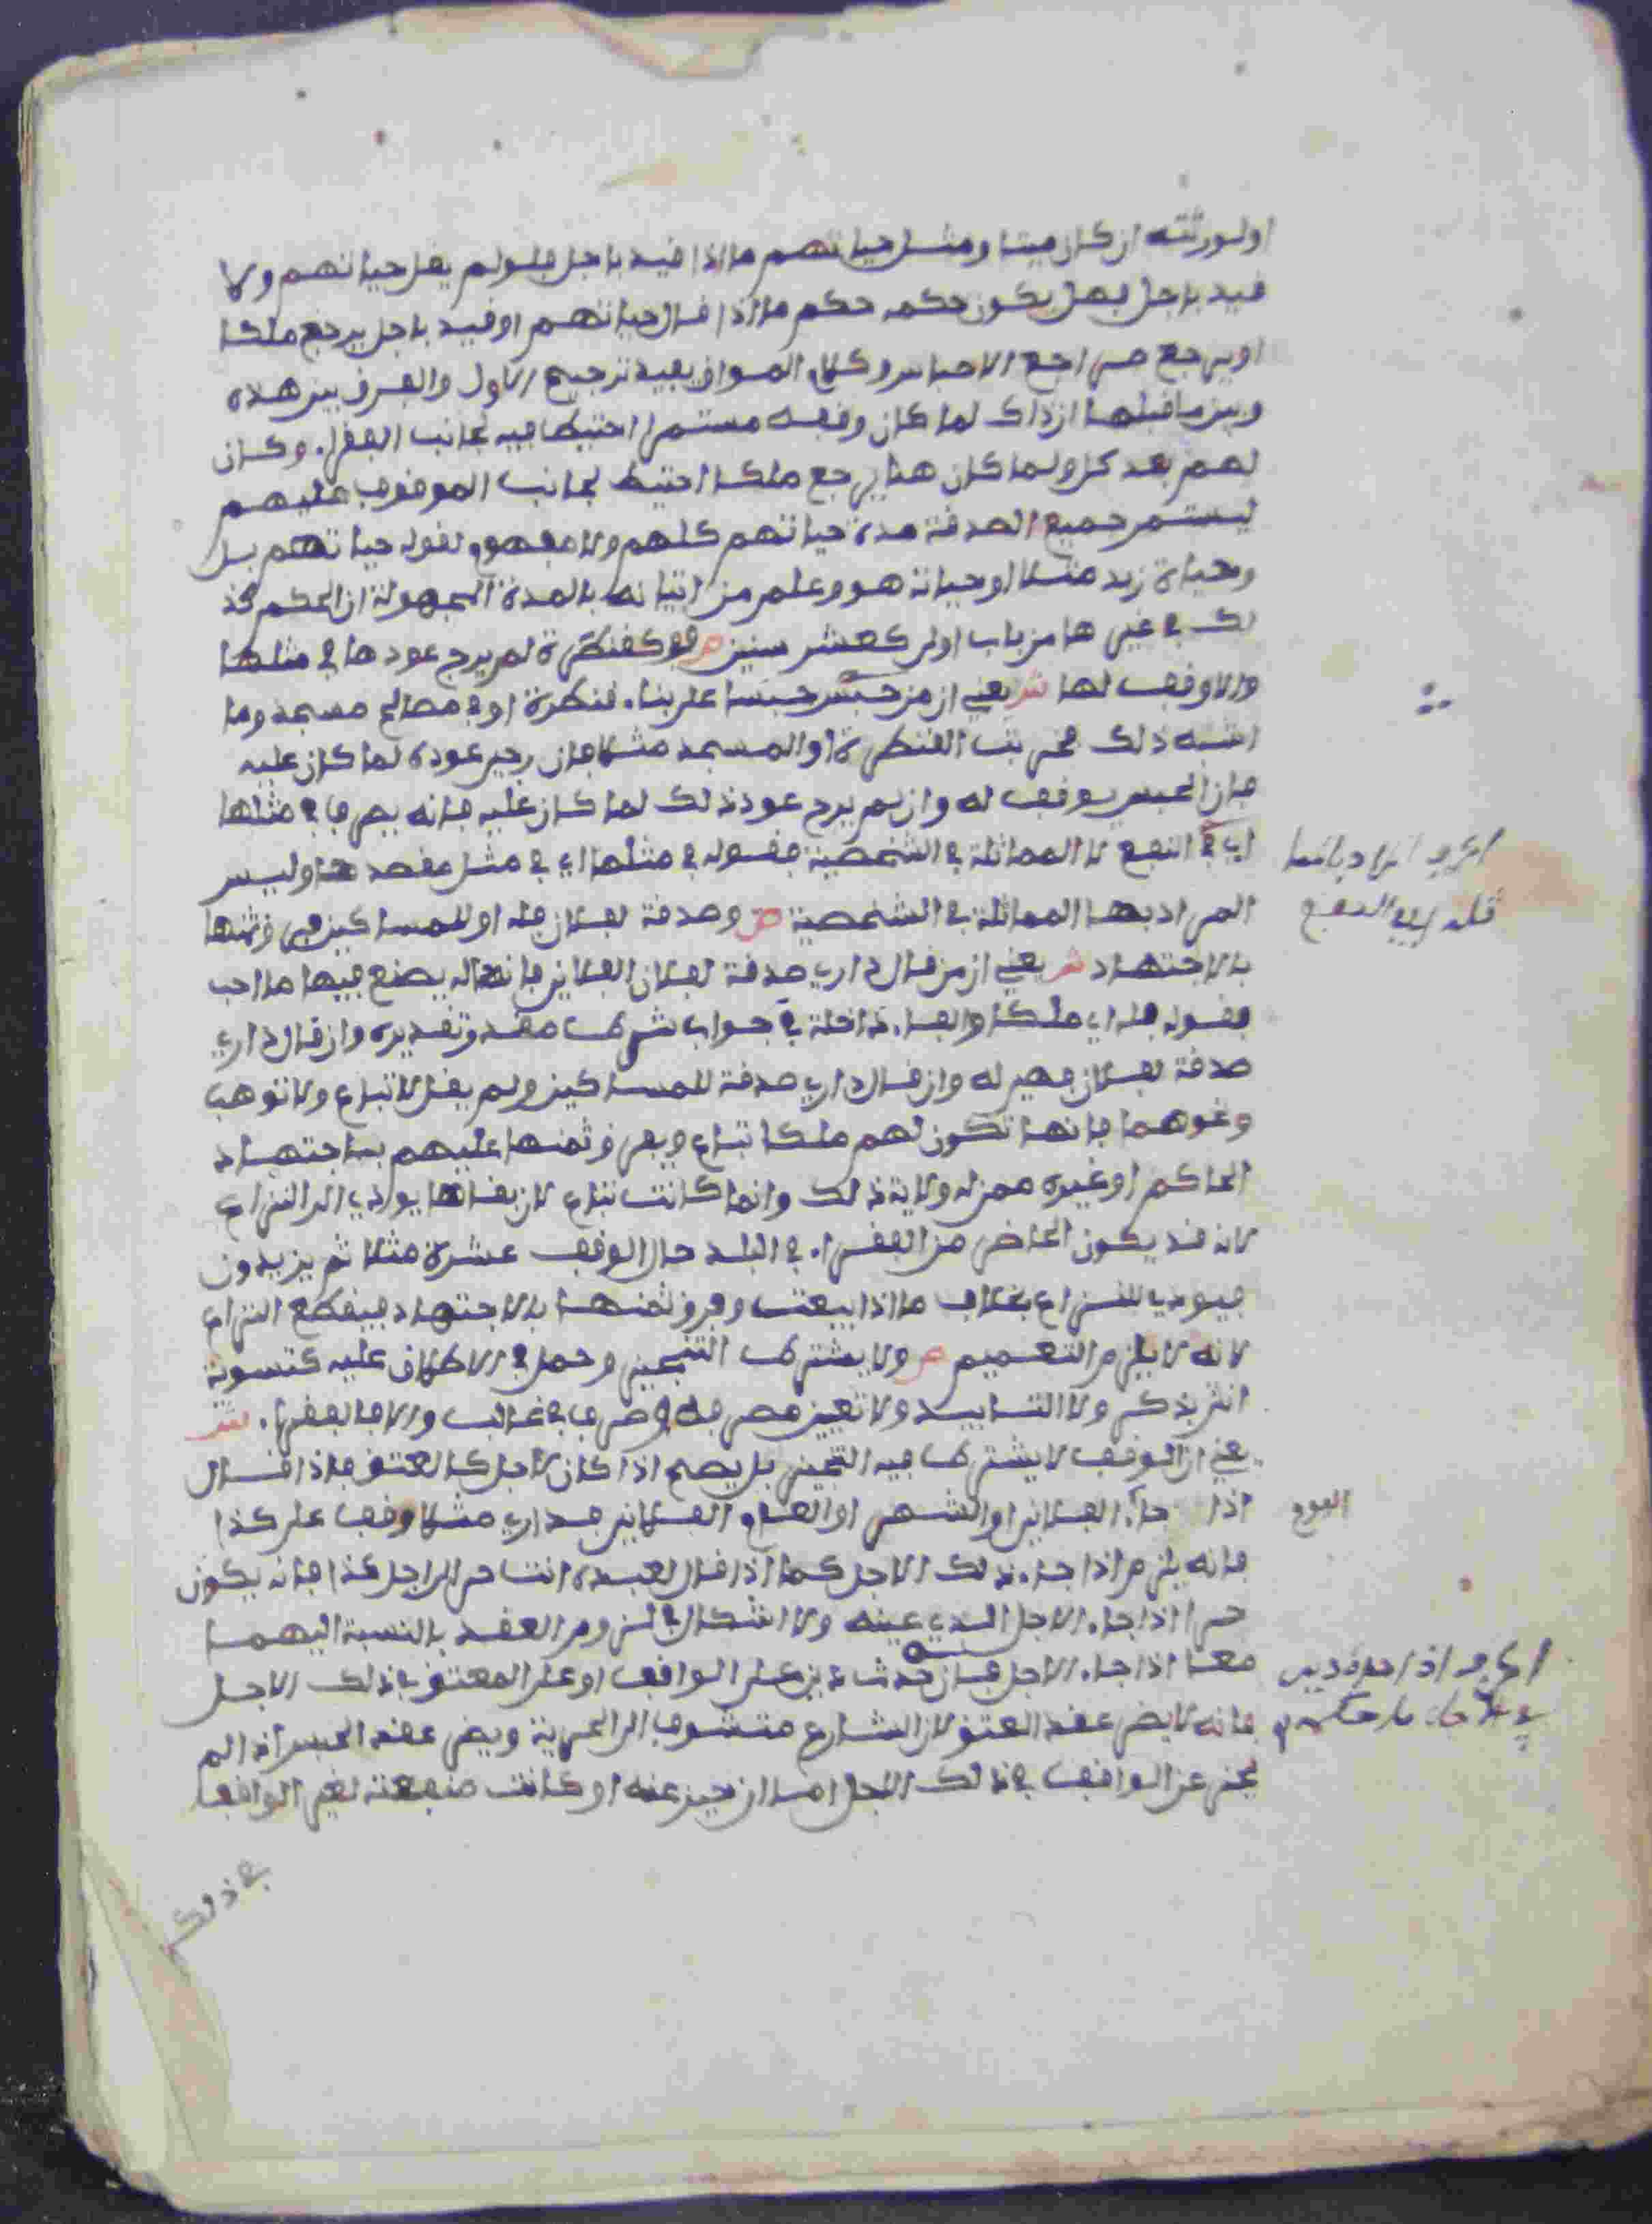 او لورثته ان كان ميتا ومثل حياتهم ما اذا قيد باجل فلو لم يقل حياتهم ولا
قيد باجل فهل يكون حكمه حكم ما اذا قال حياتهم او قيد باجل يرجع ملكا
او يرجع مراجع الاحباس وكلام المواق يفيد ترجيح الاول والفرق بين هذه
وبين ما قبلها ان ذاك لما كان وقفه مستمرا احتيط فيه لجانب الفقراء وكان
لهم بعد كل ولما كان هنا يرجع ملكا احتيط لجانب الموقوف عليهم
ليستمر جميع الصدقة مدة حياتهم كلهم ولا مفهوم لقوله حياتهم بل
وحياة زيد مثلا او حياته هو وعلم من اتيانه بالمدة المجهولة ان الحكم كذ
لك في غيرها من باب اولى كعشر سنين ص وفي كقنطرة لم يرج عودها في مثلها
والا وقف لها ش يعني ان من حبس حبسا على بناء قنطرة او في مصالح مسجد وما
اشبه ذلك فخربت القنطرة او المسجد مثلا فان رجي عوده لما كان عليه
فان الحبس يوقف له وان لم يرج عود ذلك لما كان عليه فانه يصرف في مثلها
اي في النفع لا المماثلة في الشخصية فقوله في مثلها اي في مثل مقصدها وليس
المراد بها المماثلة في الشخصية ص وصدقة لفلان فله او للمساكين فرق ثمنها
بالاجتهاد ش يعني ان من قال داري صدقة لفلان الفلاني فانها له يصنع فيها ما احب
فقوله فله اي ملكا والفاء داخلة في جواب شرط مقدر وتقديره وان قال داري
صدقة لفلان فهي له وان قال داري صدقة للمساكين ولم يقل لا تباع ولا توهب
ونحوهما فانها تكون لهم ملكا تباع ويفرق ثمنها عليهم باجتهاد
الحاكم او غيره ممن له ولاية ذلك وانما كانت تباع لان بقاءها يودي الى النزاع
لانه قد يكون الحاضر من الفقراء في البلد حال الوقف عشرة مثلا ثم يزيدون
فيودي للنزاع بخلاف ما اذا بيعت وفرق ثمنها بالاجتهاد فينقطع النزاع
لانه لا يلزم التعميم ص ولا يشترط التنجيز وحمل في الاطلاق عليه كتسوية
انثى بذكر ولا التابيد ولا تعيين مصرفه وصرف في غالب والا فالفقراء ش
يعني ان الوقف لا يشترط فيه التنجيز بل يصح اذا كان لاجل كالعتق فاذا قال
اذا جاء الفلاني او الشهر او العام الفلاني فداري مثلا وقف على كذا
فانه يلزم اذا جاء ذلك الاجل كما اذا قال لعبده انت حر الى اجل كذا فانه يكون
حرا اذا جاء الاجل الذي عينه ولا اشكال في لزوم العقد بالنسبة اليهما
معا اذا جاء الاجل فان حدث دين على الواقف او على المعتق في ذلك الاجل
فانه لا يضر عقد العتق لان الشارع متشوف الى الحرية ويضر عقد الحبس اذا لم
يحز عن الواقف في ذلك الاجل اما ان حيز عنه او كانت منفعته لغير الواقف
في ذلك
اليوم